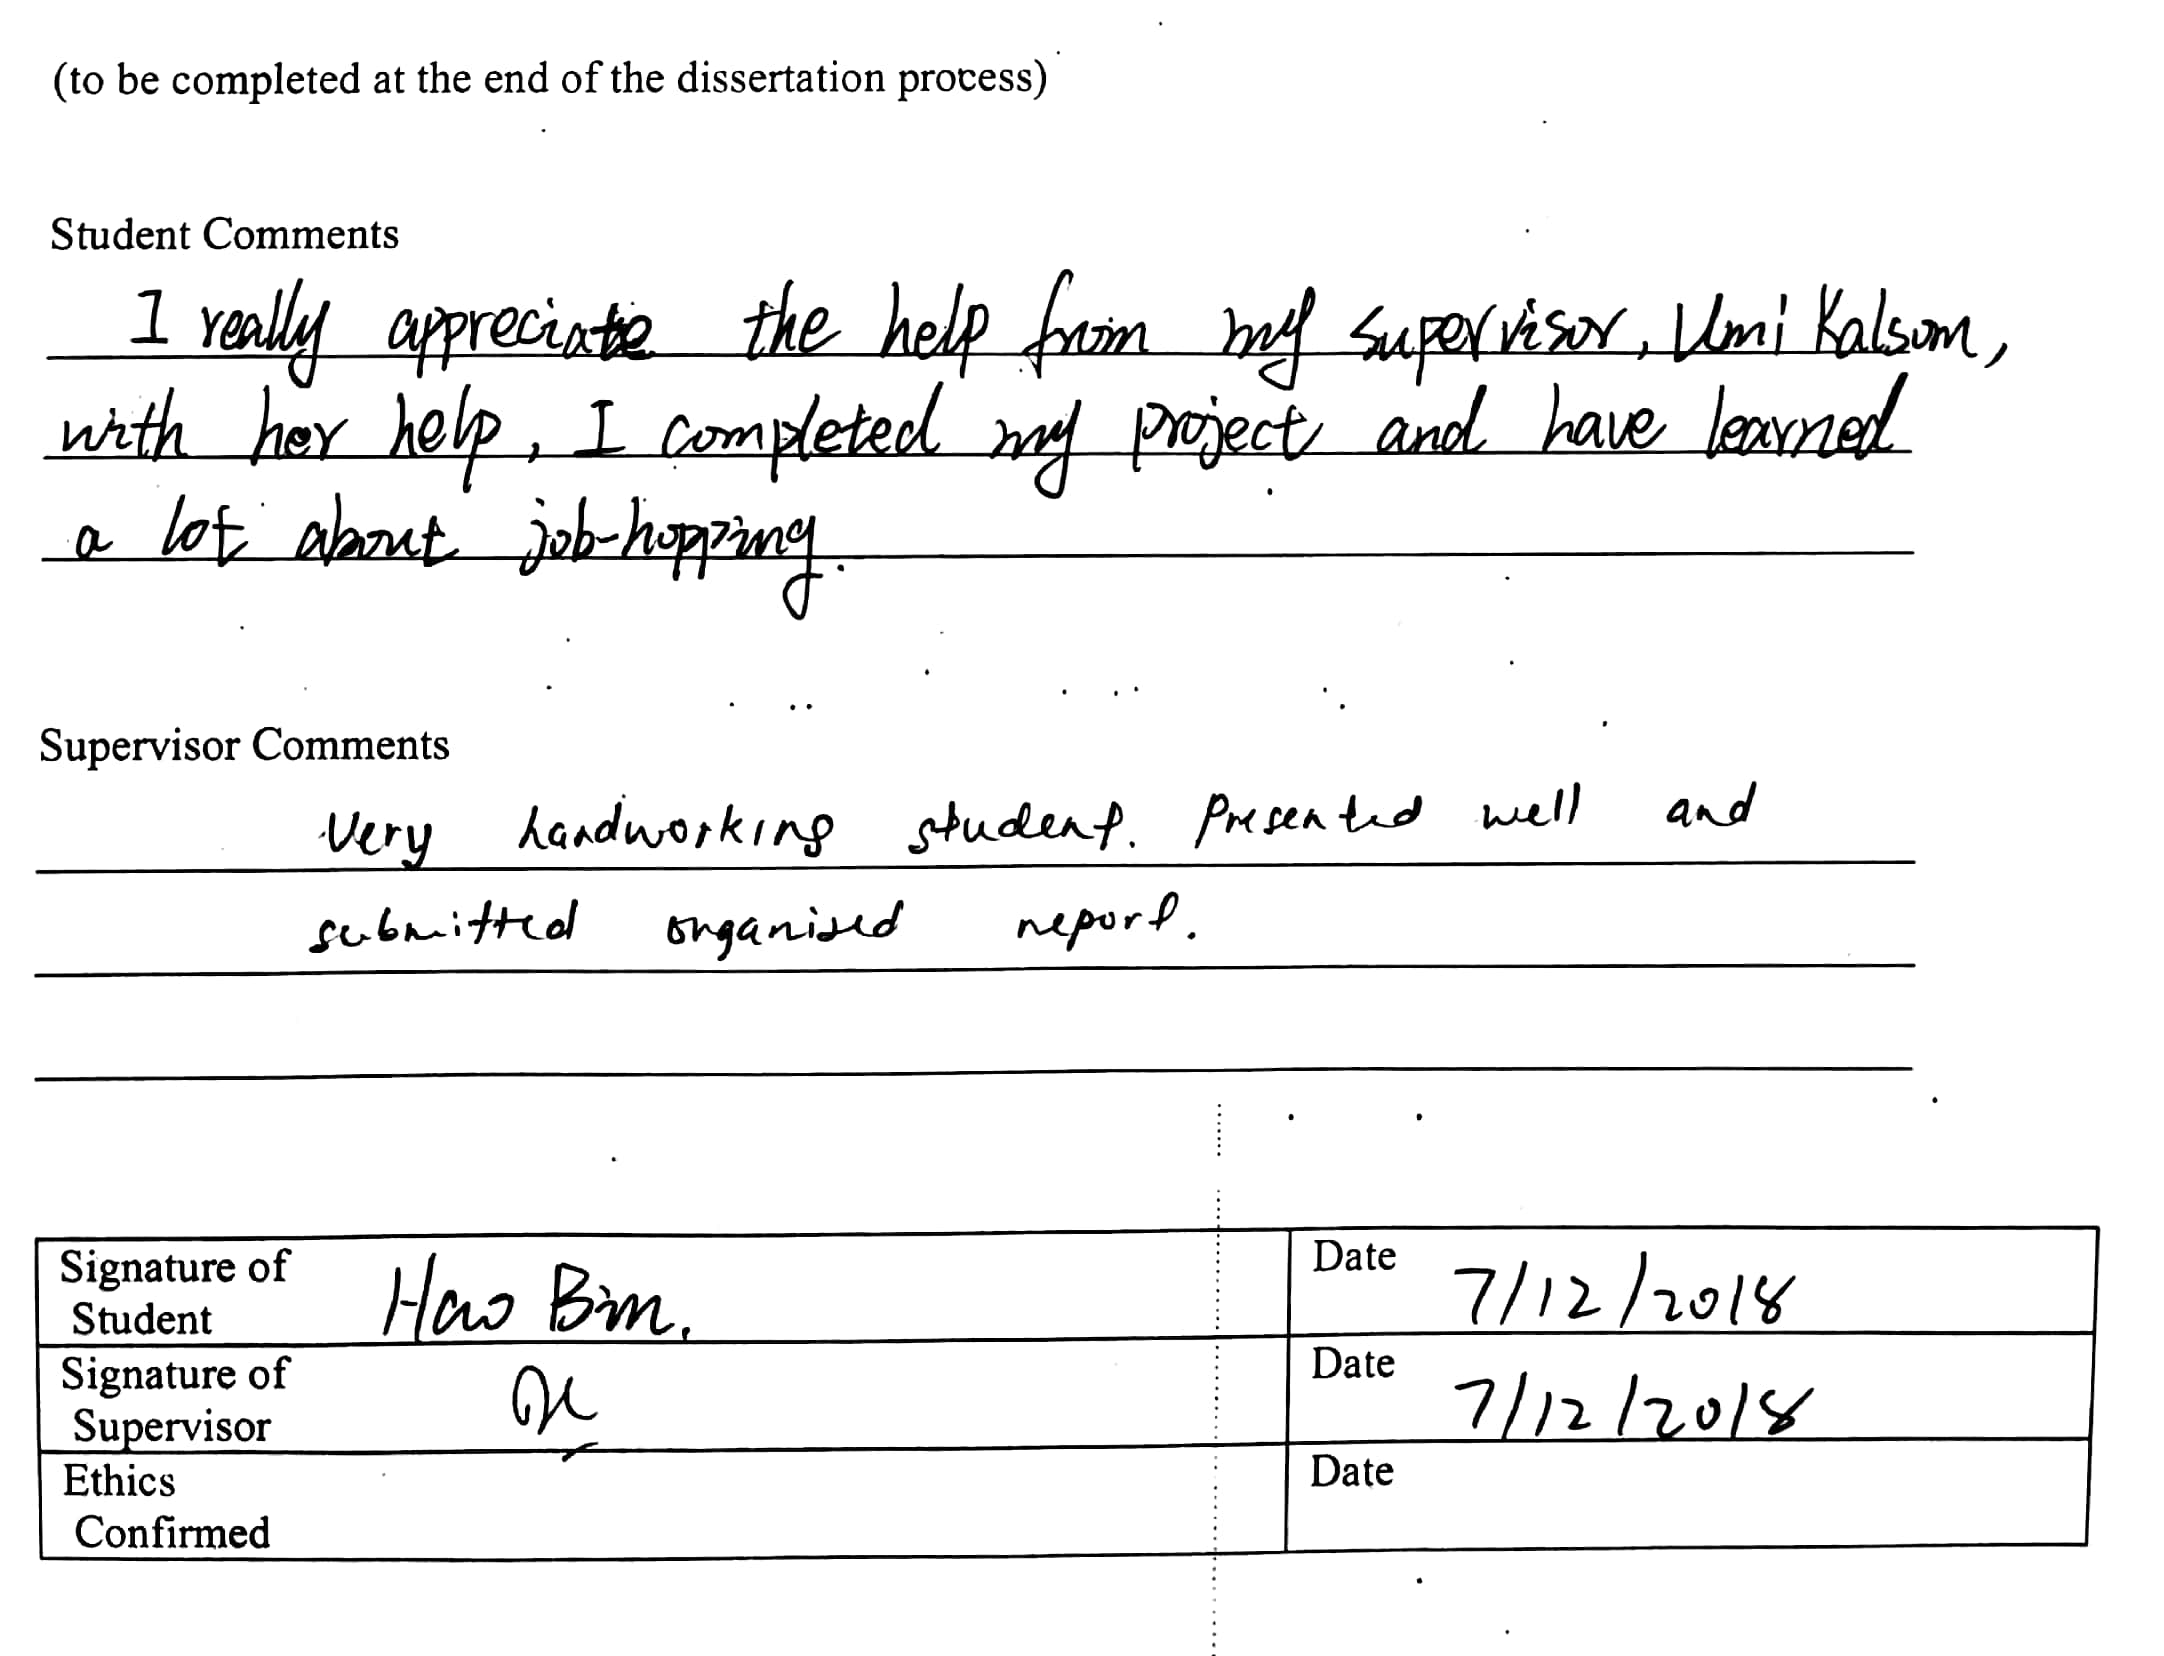 (to be completed at the end of the dissertation process)
Student Comments
I really appreciate the help from my supervisor, Umi Kalsom,
with her help, I completed my project and have learned
a lot about job-hopping.
Supervisor Comments
Very hardworking student. Presented well and
submitted organised report.
Signature of Student Hao Bin. Date 7/12/2018
Signature of Supervisor Date 7/12/2018
Ethics Confirmed Date